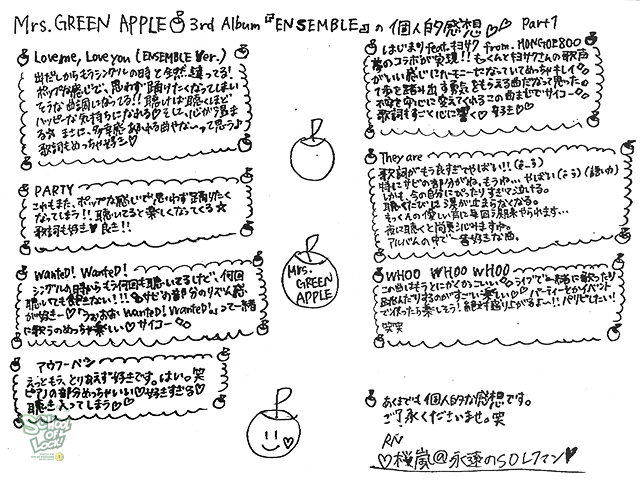 Mrs. GREEN APPLE 3rd Album『ENSEMBLE』の個人的感想♡♡ Part1
Love me, Love you (ENSEMBLE Ver.)
出だしからもうシングルの時と全然違ってる!
ポップな感じで、思わず踊りたくなってしまい
そうな曲調になってる!! 聴けば聴くほど
ハッピーな気持ちになれる♡そして、心が温ま
る☆ まさに、多幸感あふれる曲やな〜って思う♪
歌詞もめっちゃ好き♡
PARTY
これもまた、ポップな感じで思わず踊りたく
なってしまう!! 聴いてると楽しくなってくる☆
歌詞も好き♡良き!!
WanteD! WanteD!
シングルの時からもう何回も聴いてるけど、何回
聴いても飽きない!!! サビの部分のリズム感
が好きー♡「うぉおおい WanteD! WanteD!」って一緒
に歌うのめっちゃ楽しい♡サイコー
アウフヘーベン
えっともう、とりあえず好きです。はい。笑
ピアノの部分めっちゃいい♡好きすぎる♡
聴き入ってしまう♡
Mrs.
GREEN
APPLE
はじまり feat. キヨサク from. MONGOL800
夢のコラボが実現!! もっくんとキヨサクさんの歌声
がいい感じにハーモニーになっていてめっちゃキレイ
1歩を踏み出す勇気をもらえる曲だなって思った。
不安を安心に変えてくれるこの曲まじでサイコー
歌詞もすごく心に響く♡好き♡
They are
歌詞がもう良すぎてやばい!!
特にサビの部分がね。もうね…やばい(語彙力)
しかも、今の自分にぴったりすぎて泣ける。
聴くたびに涙が止まらなくなる。
もっくんの優しい声に毎回やられます…
夜に聴くと尚更沁みますね。
アルバムの中で一番好きな曲。
WHOO WHOO WHOO
この曲はもうとにかくかっこいい ライブで一緒に歌ったり
跳んだりするのがすごい楽しい♡♡ パーティーとかイベント
で使ったら楽しそう! 絶対盛り上がるよ〜!! パリピしたい!
笑笑
あくまでも個人的な感想です。
ご了承くださいませ。笑
RN
♡桜嵐@永遠のSOLクマン♡